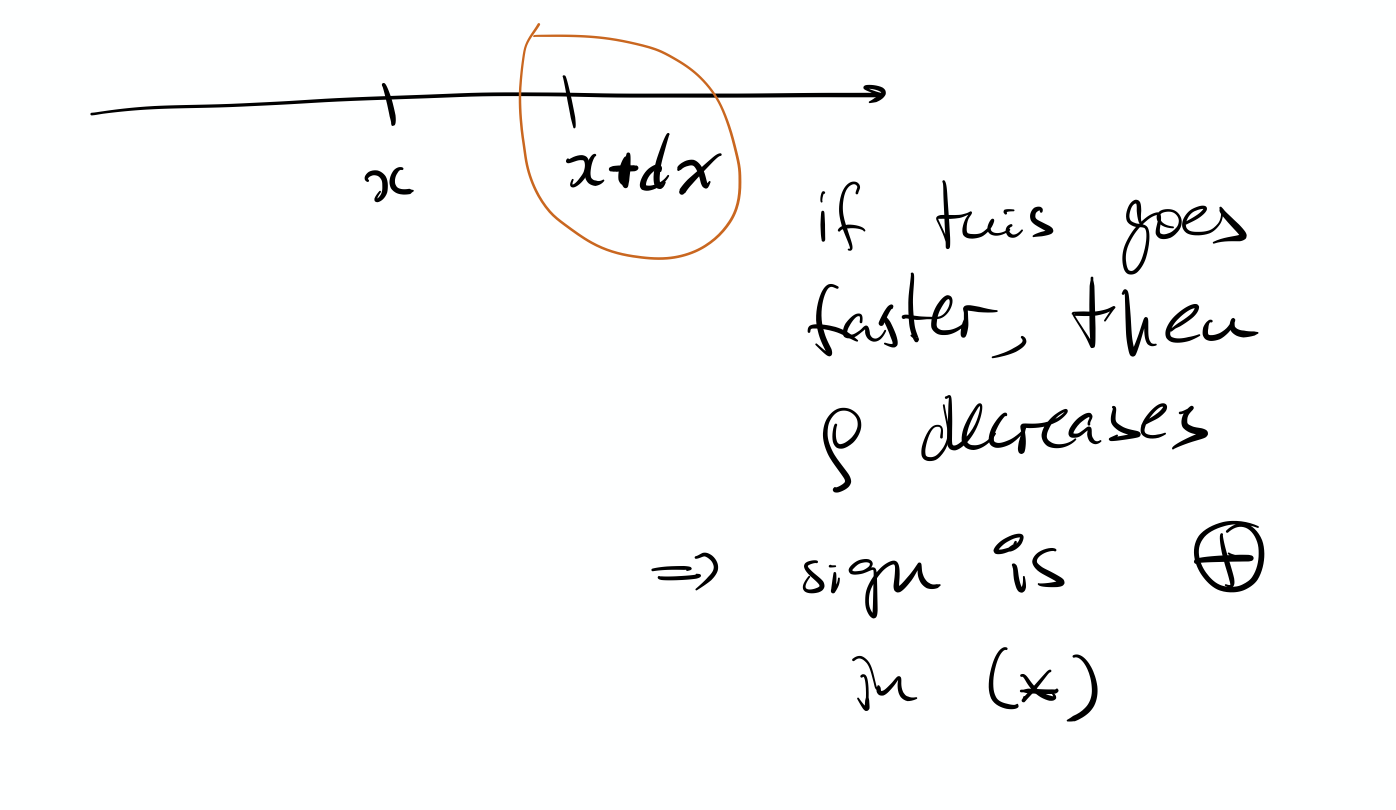 x
x+dx
if this goes
faster, then
ρ decreases
⇒ sign is ⊕
in (*)